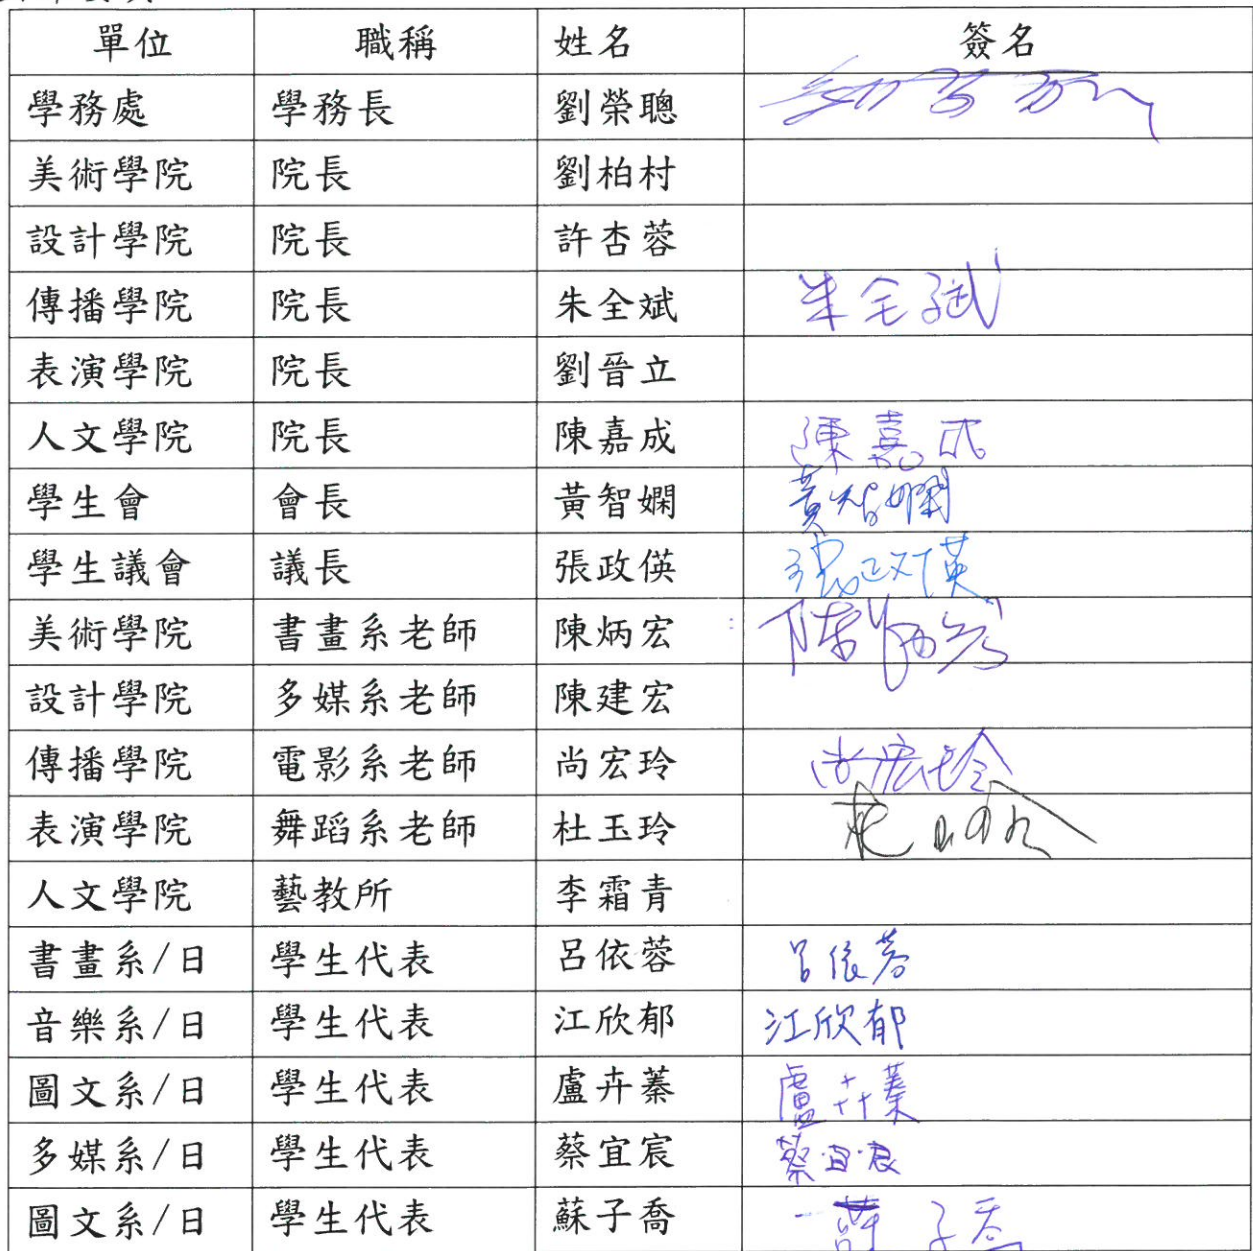 單位 職稱 姓名 簽名
學務處 學務長 劉榮聰
美術學院 院長 劉柏村
設計學院 院長 許杏蓉
傳播學院 院長 朱全斌 朱全斌
表演學院 院長 劉晉立
人文學院 院長 陳嘉成 陳嘉成
學生會 會長 黃智嫻 黃智嫻
學生議會 議長 張政偀 張政偀
美術學院 書畫系老師 陳炳宏 陳炳宏
設計學院 多媒系老師 陳建宏
傳播學院 電影系老師 尚宏玲 尚宏玲
表演學院 舞蹈系老師 杜玉玲
人文學院 藝教所 李霜青
書畫系/日 學生代表 呂依蓉 呂依蓉
音樂系/日 學生代表 江欣郁 江欣郁
圖文系/日 學生代表 盧卉蓁 盧卉蓁
多媒系/日 學生代表 蔡宜宸 蔡宜宸
圖文系/日 學生代表 蘇子喬